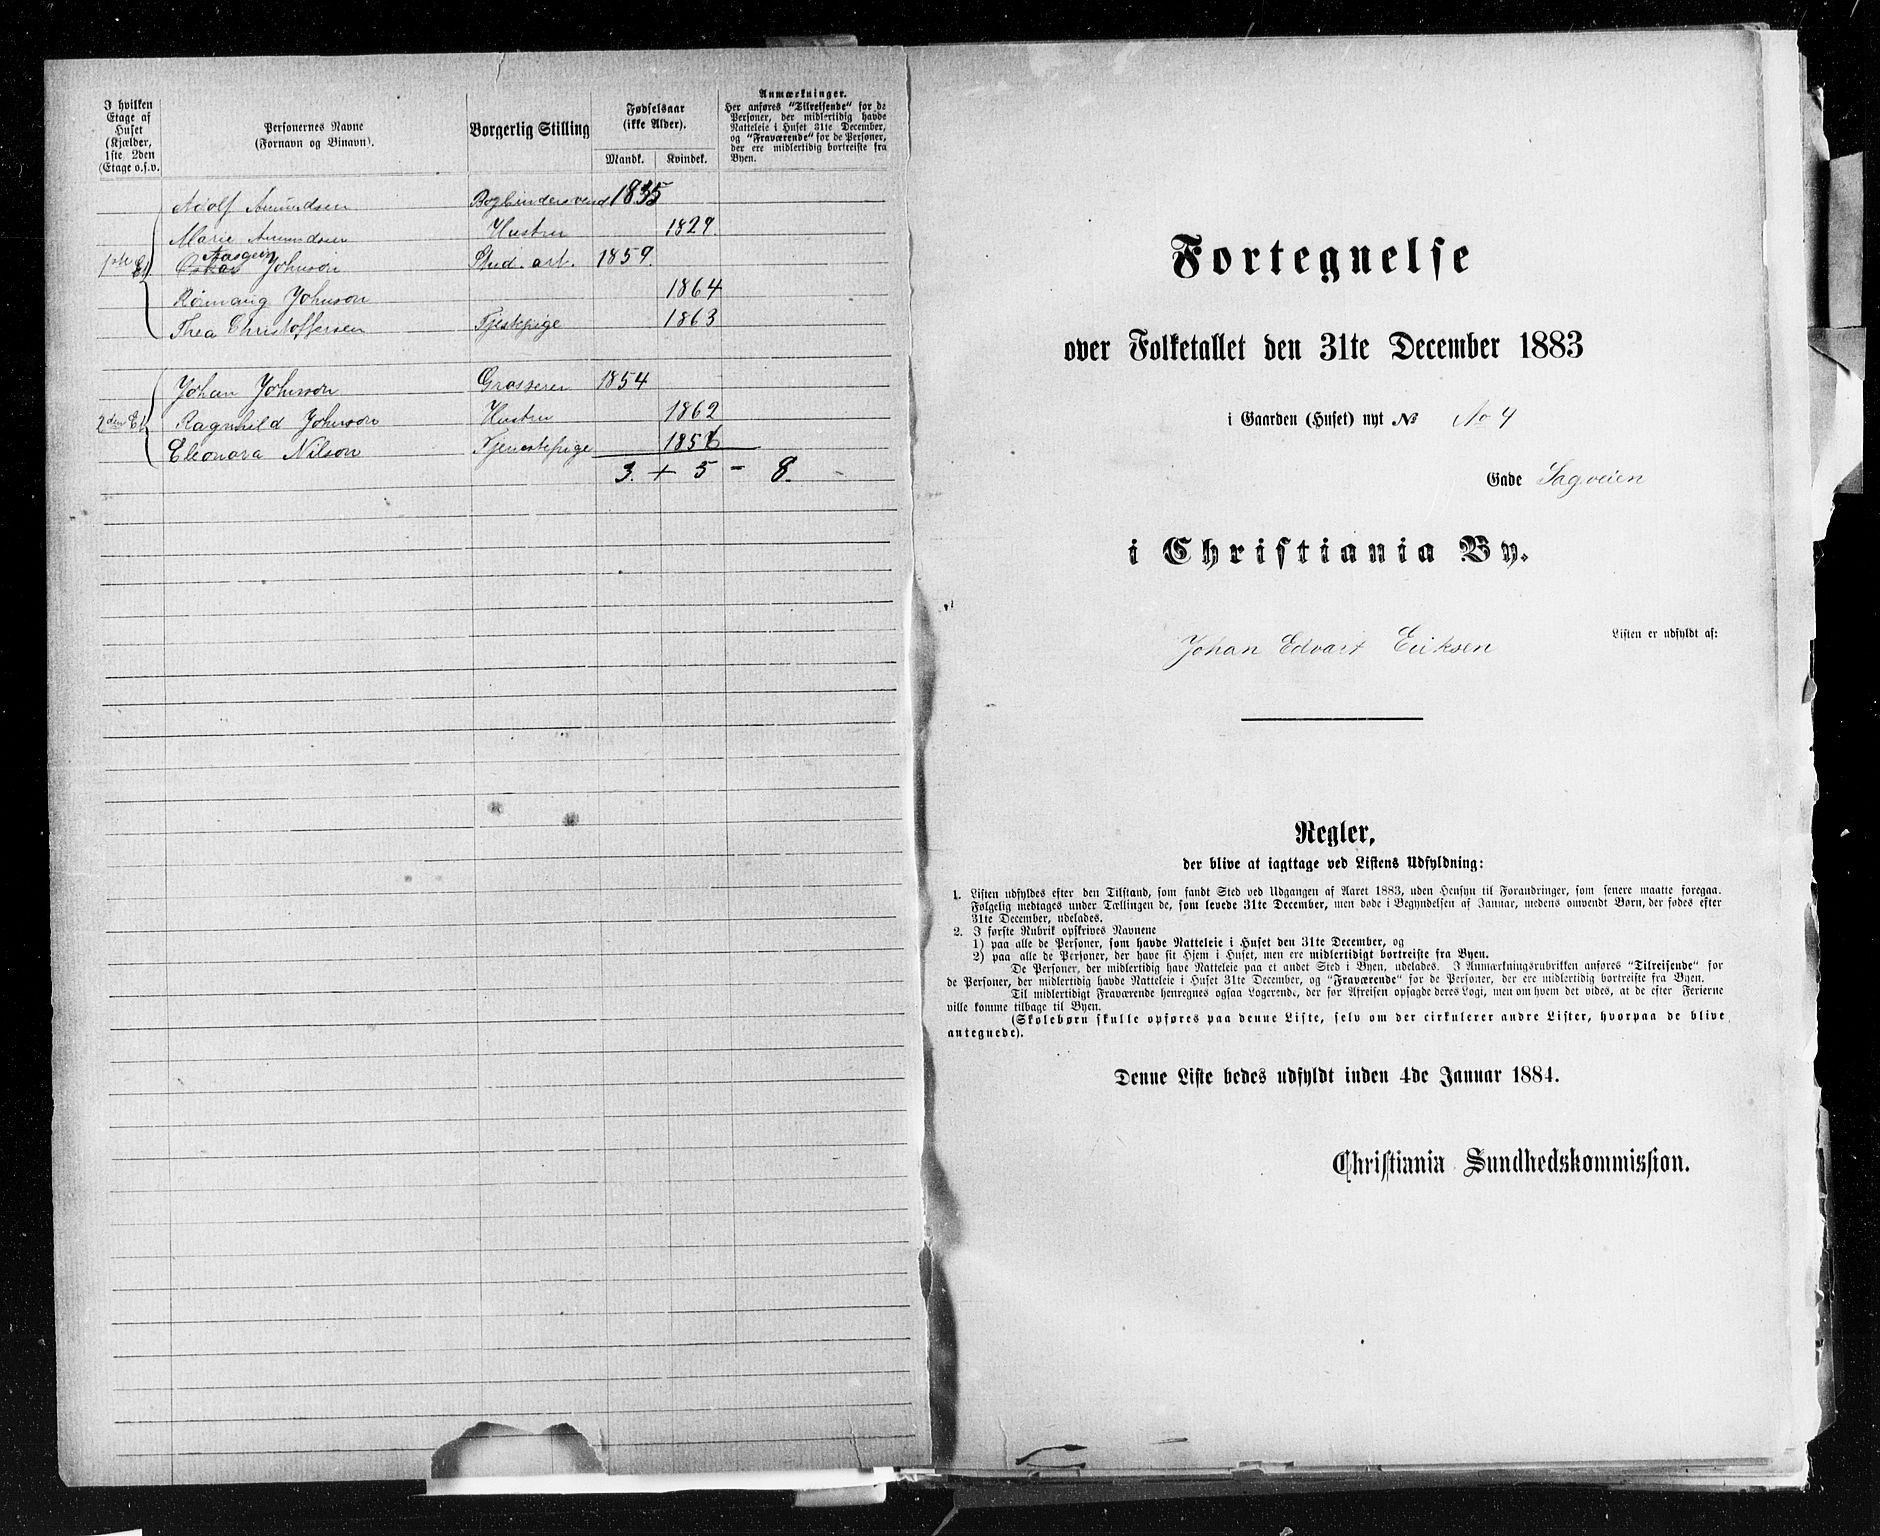 I hvilken
Etage af
Huset
(Kjælder,
1ste 2den
(Etage o.s.v.
Personernes Navne
(Fornavn og Binavn).
Borgerlig Stilling
Fødselsaar
(ikke Alder).
Mandk. Kvindek.
Anmærkninger.
Her anføres "Tilreisende" for de
Personer, der midlertidig havde
Natteleie i Huset 31te December,
og "Fraværende" for de Personer,
der ere midlertidig bortreiste fra
Byen.
Adolf Amundsen Bogbindersvend 1835
Marie Amundsen Hustru 1829
Aasgeir
1ste Et Oskar Johnson Stud. art. 1859
Johnson 1864
Thea Christoffersen Tjestepige 1863
Johan Johnson Grosserer 1854
2den Et Ragnhild Johnson Hustru 1862
Eleonora Nilson Tjenestepige 1856
3. + 5 - 8.
Fortegnelse
over Folketallet den 31te December 1883
i Gaarden (Huset) nyt № No 4
Gade Sagveien
i Christiania By.
Listen er udfyldt af:
Johan Edvart Eriksen
Regler,
der blive at iagttage ved Listens Udfyldning:
1. Listen udfyldes efter den Tilstand, som fandt Sted ved Udgangen af Aaret 1883, uden Hensyn til Forandringer, som senere maatte foregaa.
Følgelig medtages under Tællingen de, som levede 31te December, men døde i Begyndelsen af Januar, medens omvendt Børn, der fødes efter
31te December, udelades.
2. I første Rubrik opskrives Navnene
1) paa alle de Personer, som havde Natteleie i Huset den 31te December, og
2) paa alle de Personer, der have sit Hjem i Huset, men ere midlertidigt bortreiste fra Byen.
De Personer, der midlertidig have Natteleie paa et andet Sted i Byen, udelades. I Anmærkningsrubrikken anføres "Tilreisende" for
de Personer, der midlertidig havde Natteleie i Huset 31te December, og "Fraværende" for de Personer, der ere midlertidig bortreiste fra Byen.
Til midlertidigt Fraværende henregnes ogsaa Logerende, der før Afreisen opsagde deres Logi, men om hvem det vides, at de efter Ferierne
ville komme tilbage til Byen.
(Skolebørn skulle opføres paa denne Liste, selv om der cirkulerer andre Lister, hvorpaa de blive
antegnede).
Denne Liste bedes udfyldt inden 4de Januar 1884.
Christiania Sundhedskommission.